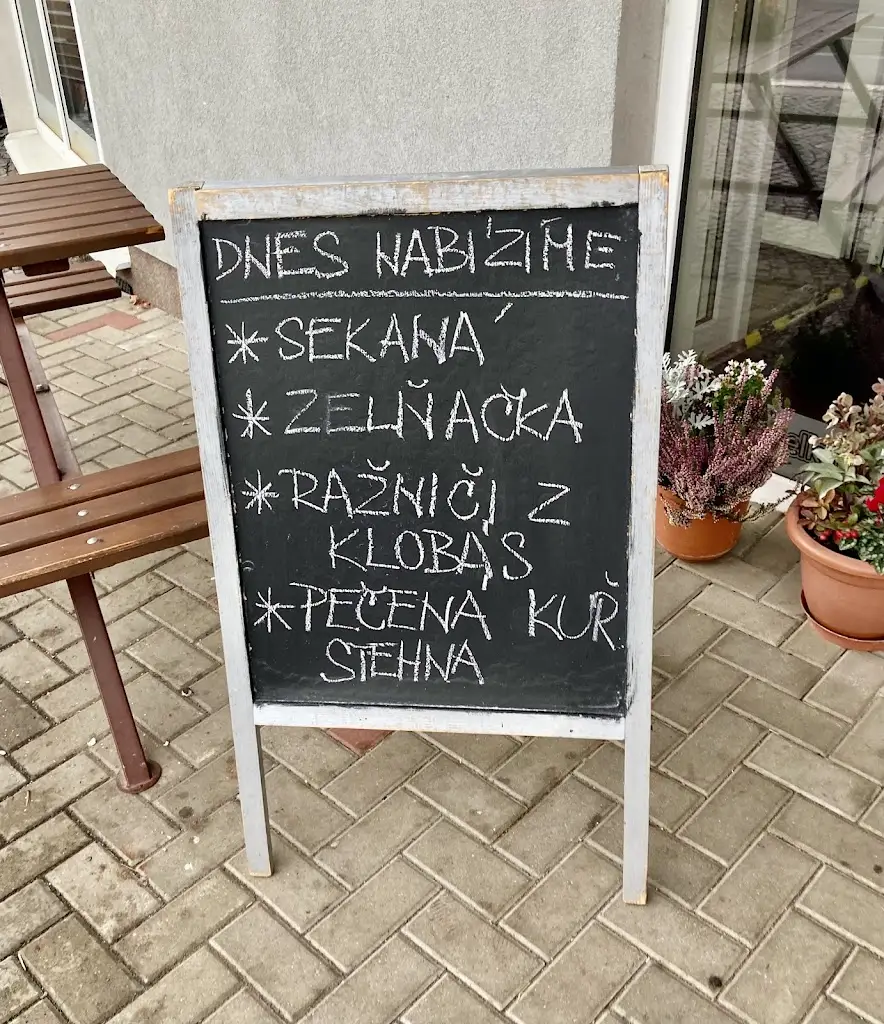 DNES NABÍZÍME
* SEKANÁ
* ZELŇAČKA
* RAŽNIČI Z
KLOBÁS
* PEČENÁ KUŘ
STEHNA